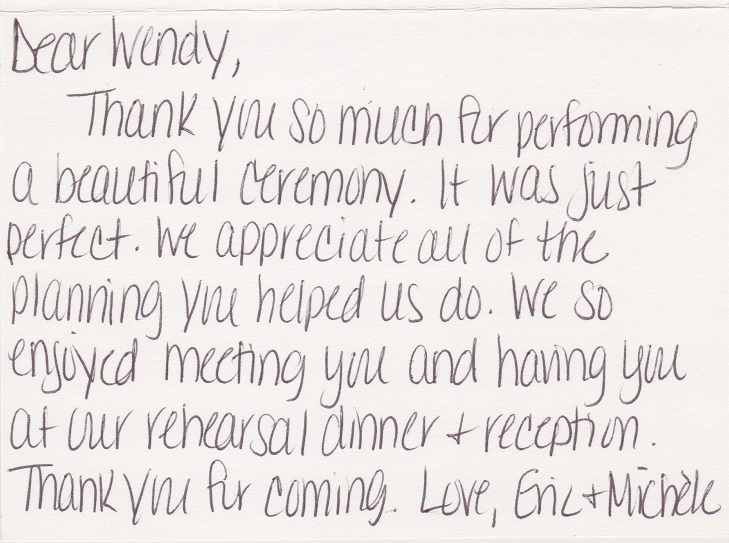 Dear Wendy,
Thank you so much for performing
a beautiful ceremony. It was just
perfect. We appreciate all of the
planning you helped us do. We so
enjoyed meeting you and having you
at our rehearsal dinner + reception.
Thank you for coming. Love, Eric + Michèle